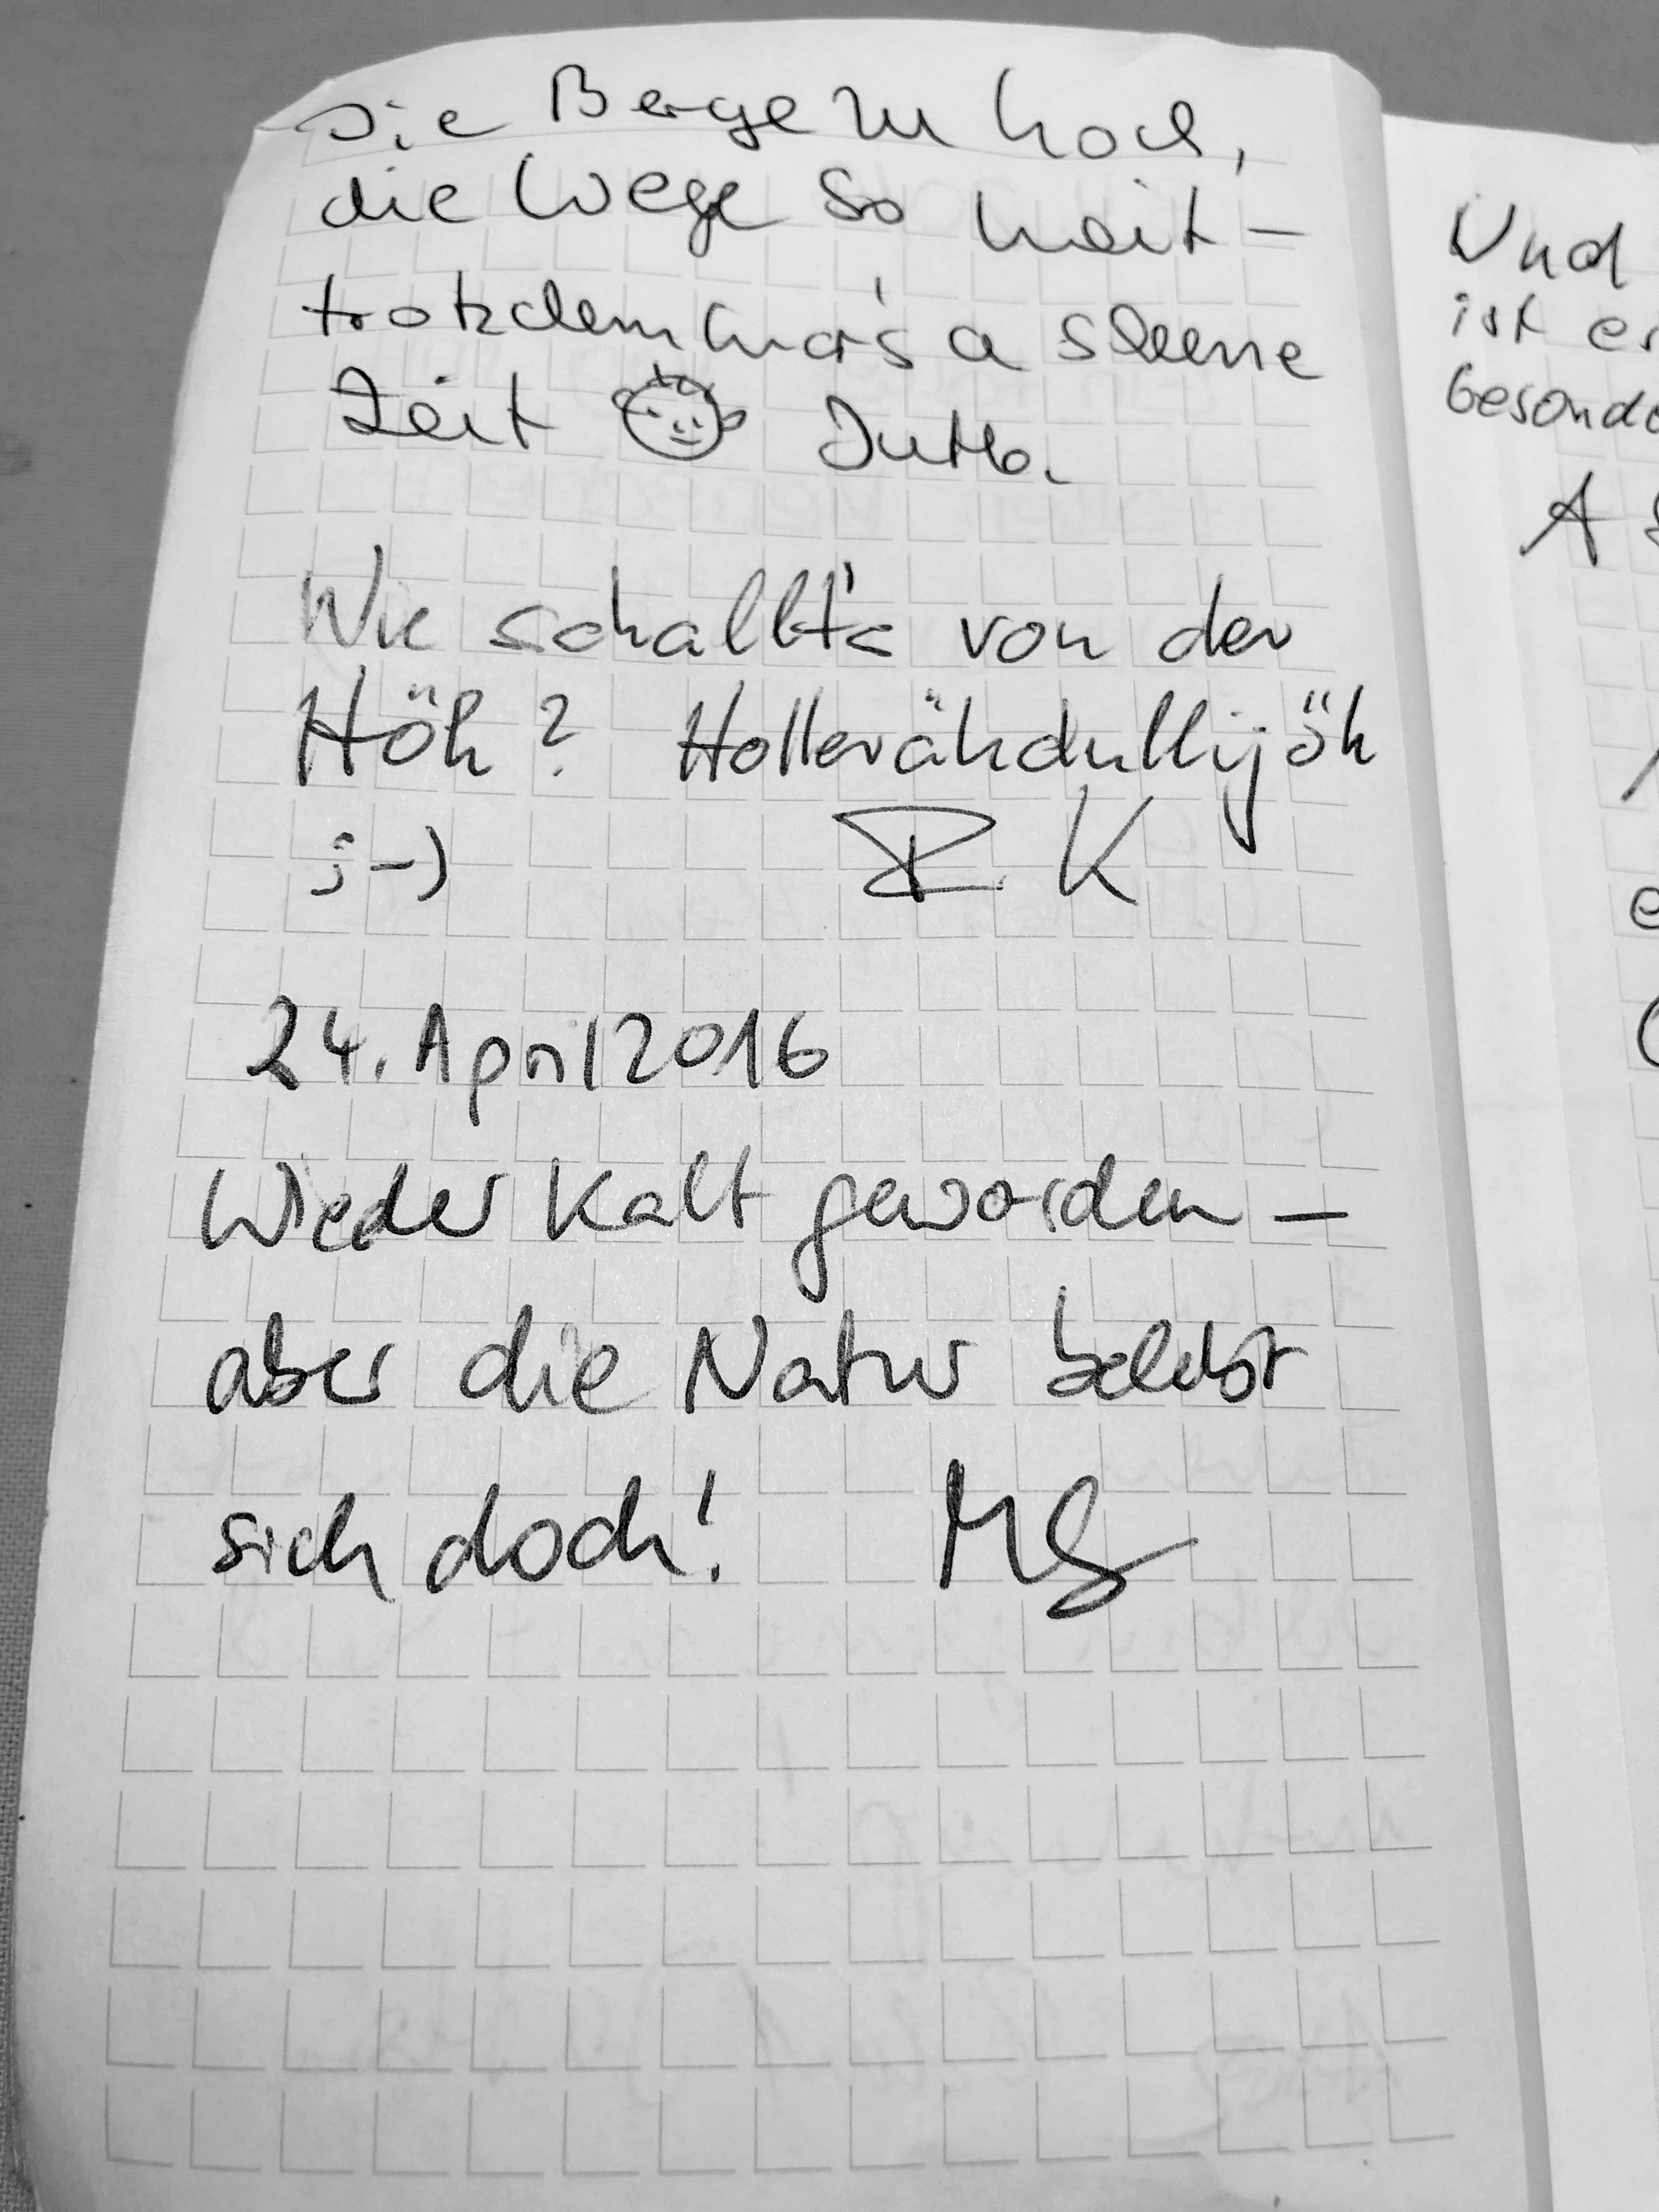 Die Berge zu hoch,
die Wege so weit –
trotzdem war's a scheene
Zeit Jutta.
Wie schallt's von der
Höh? Hollerähdullijöh
;-) R. K
24. April 2016
Wieder kalt geworden –
aber die Natur belebt
sich doch! MS
Und
ist er
besonde
A